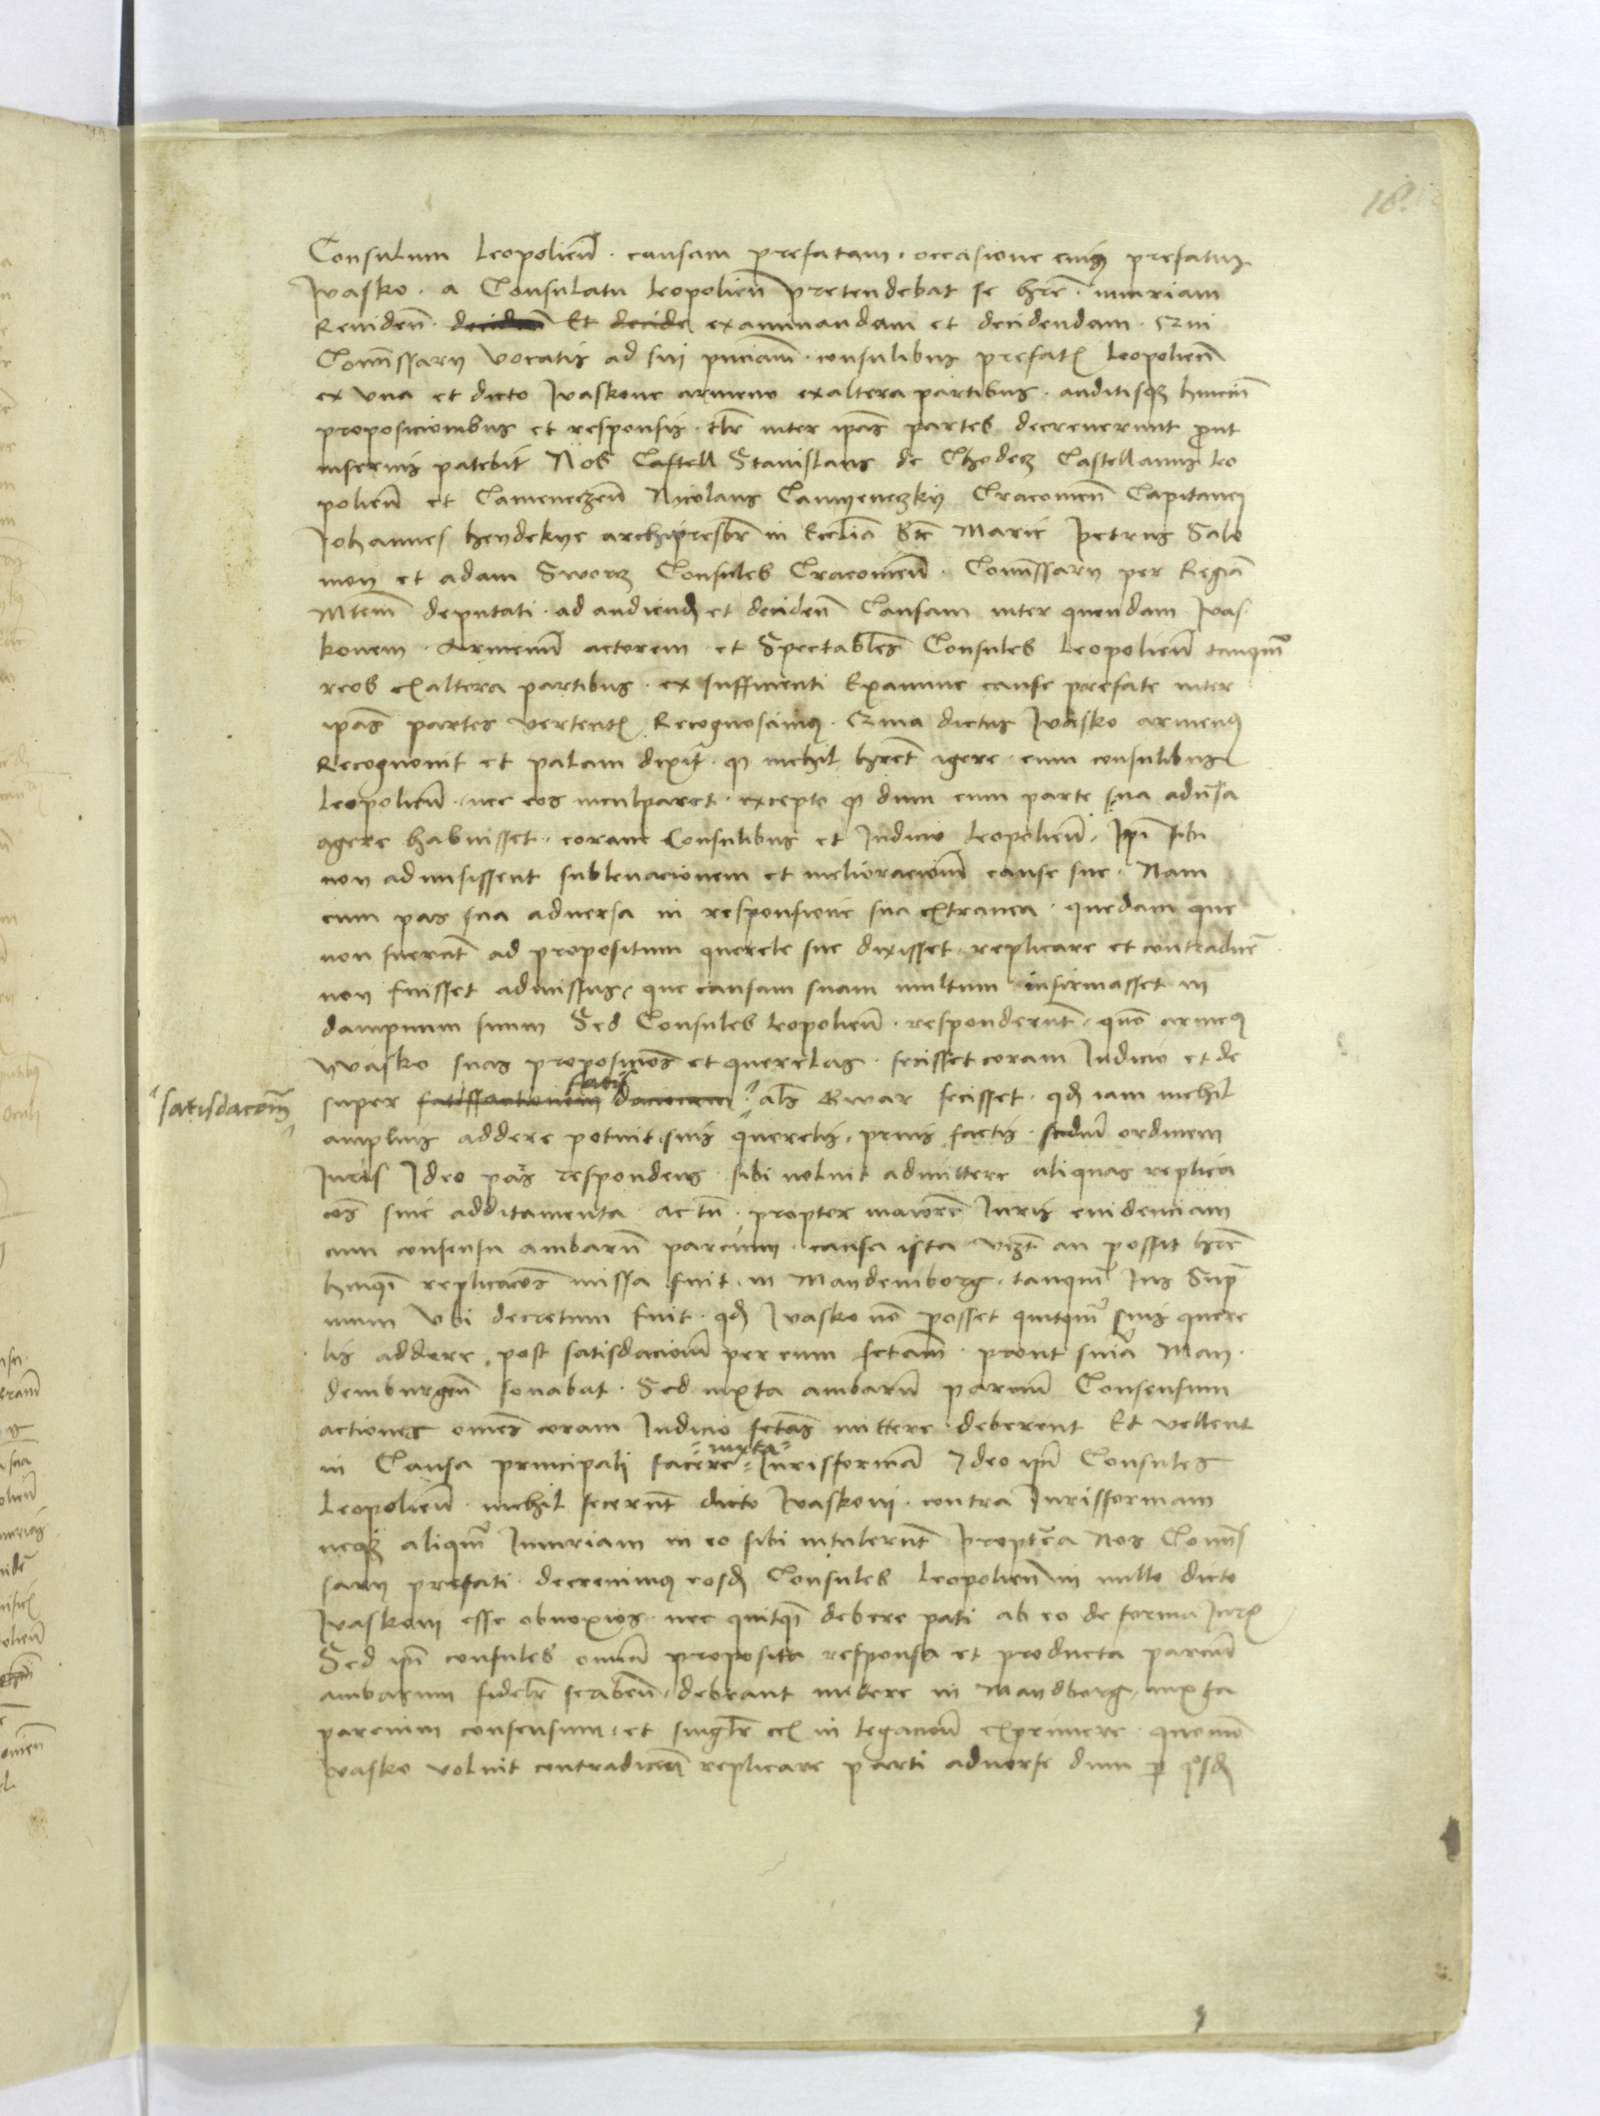 18.
Consulum Leopolien̄ · causam prefatam · occasione cuiꝰ prefatus
Ivasko · a Consulatu leopolien̄ pretendebat se hr̄e · iniuriam
Reuiden̄ · deciden̄ Et decide examinandam et decidendam · Qui
Com̄issarij vocatis ad sui pn̄ciam̄ · consulibus prefatꝭ leopolien̄
ex vna et dicto Ivaskone armeno exaltera partibus · auditisqꝫ hincin̄
proposicionibus et responsis · tlr̄ inter ip̄as partes decreuerunt prout
inferius patebit Nos Castell Stanislaus de Chodecz Castellanus leo
polien̄ et Cameneczen̄ Nicolaus Camyeneczky Cracouien̄ Capitanei
Johannes heydekye archipresbr̄ in Ecclīa Btē Marie Petrus Salo
mon et adam Swarcz Consules Cracouien̄ · Com̄issarij per Regiā
Mtem̄ deputati · ad audiendꝫ et deciden̄ Causam inter quendam Ivas
konem · Armenū actorem · et Spectabl̄es Consules Leopolien̄ tanqm̄
reos exaltera partibus · ex sufficienti Examine cause prefate inter
ip̄as partes vertentꝭ Recognoscimꝰ · Quia dictus Ivasko armenꝰ
Recognouit et palam dixit · ꝙ nichil hr̄et agere · cum consulibus
Leopolien̄ · nec eos inculparet · excepto ꝙ dum cum parte sua adūsa
agere habuisset · coram Consulibus et Iudicio leopolien̄ · Ip̄i sibi
non admisissent subleuacionem et melioracionē cause sue · Nam
cum pars sua aduersa in responsione sua extranea · quedam que
non fuerāt ad propositum querele sue dixisset · replicare et contradicē
non fuisset admissus · que causam suam multum infirmasset in
dampnum suum Sed Consules leopolien̄ · responderūt · quō armenꝰ
Ivasko suas proposicōes et querelas · fecisset coram Iudicio et de
satisdacōem̄
super satissactionem satis dacionem als Ewar fecisset · qđ iam nichil
amplius addere potuit suis querelis · prius factis · scdm̄ ordinem
Iuris Ideo pars respondens · sibi noluit admittere aliquas replica
cōes siue additamenta · Actū · propter maiorē Iuris euidenciam
cum consensu ambarū parcium · causa ista vizt̄ an possit hr̄e
hmōi replicacōes missa fuit · in Mandemborg · tanqm̄ Ius Supr̄
mum Vbi decretum fuit · qđ Ivasko nō posset quitqm̄ suis quere
lis addere · post satisdacionē per eum fctam̄ · prout snīa Man
demburgen̄ sonabat · Sed iuxta ambarū parciū Consensum
actiones om̄es coram Iudicio fctas̄ mittere · deberent Et vellent
in Causa principali facere iuxta Iurisformā Ideo ip̄i Consules
Leopolien̄ · nichil fecerūt dicto Ivaskoni · contra Iurisformam
neqꝫ aliqm̄ Iniuriam in eo sibi intulerūt Proptr̄ea Nos Com̄is
sarij prefati · decreuimꝰ eosdꝫ Consules leopolien̄ in nullo dicto
Ivaskoni esse obnoxios · nec quitqꝫ debere pati ab eo de forma Iurꝭ
Sed ip̄i consules om̄ia proposita responsa et producta parciū
ambarum fidelr̄ scrīben̄ · debeant mittere in Mandborg · iuxta
parcium consensum · et singlr̄ in legacionē exprimere · quomō
Ivasko voluit contradicen̄ replicare parti aduerse dum